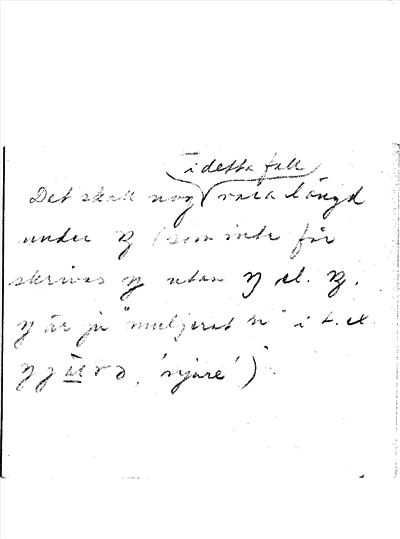 i detta fall
Det skall nog vara längd
under ŋ (som inte får
skrivas utan ŋ el.
är ju "muljerat n" i t. ex.
'njure')